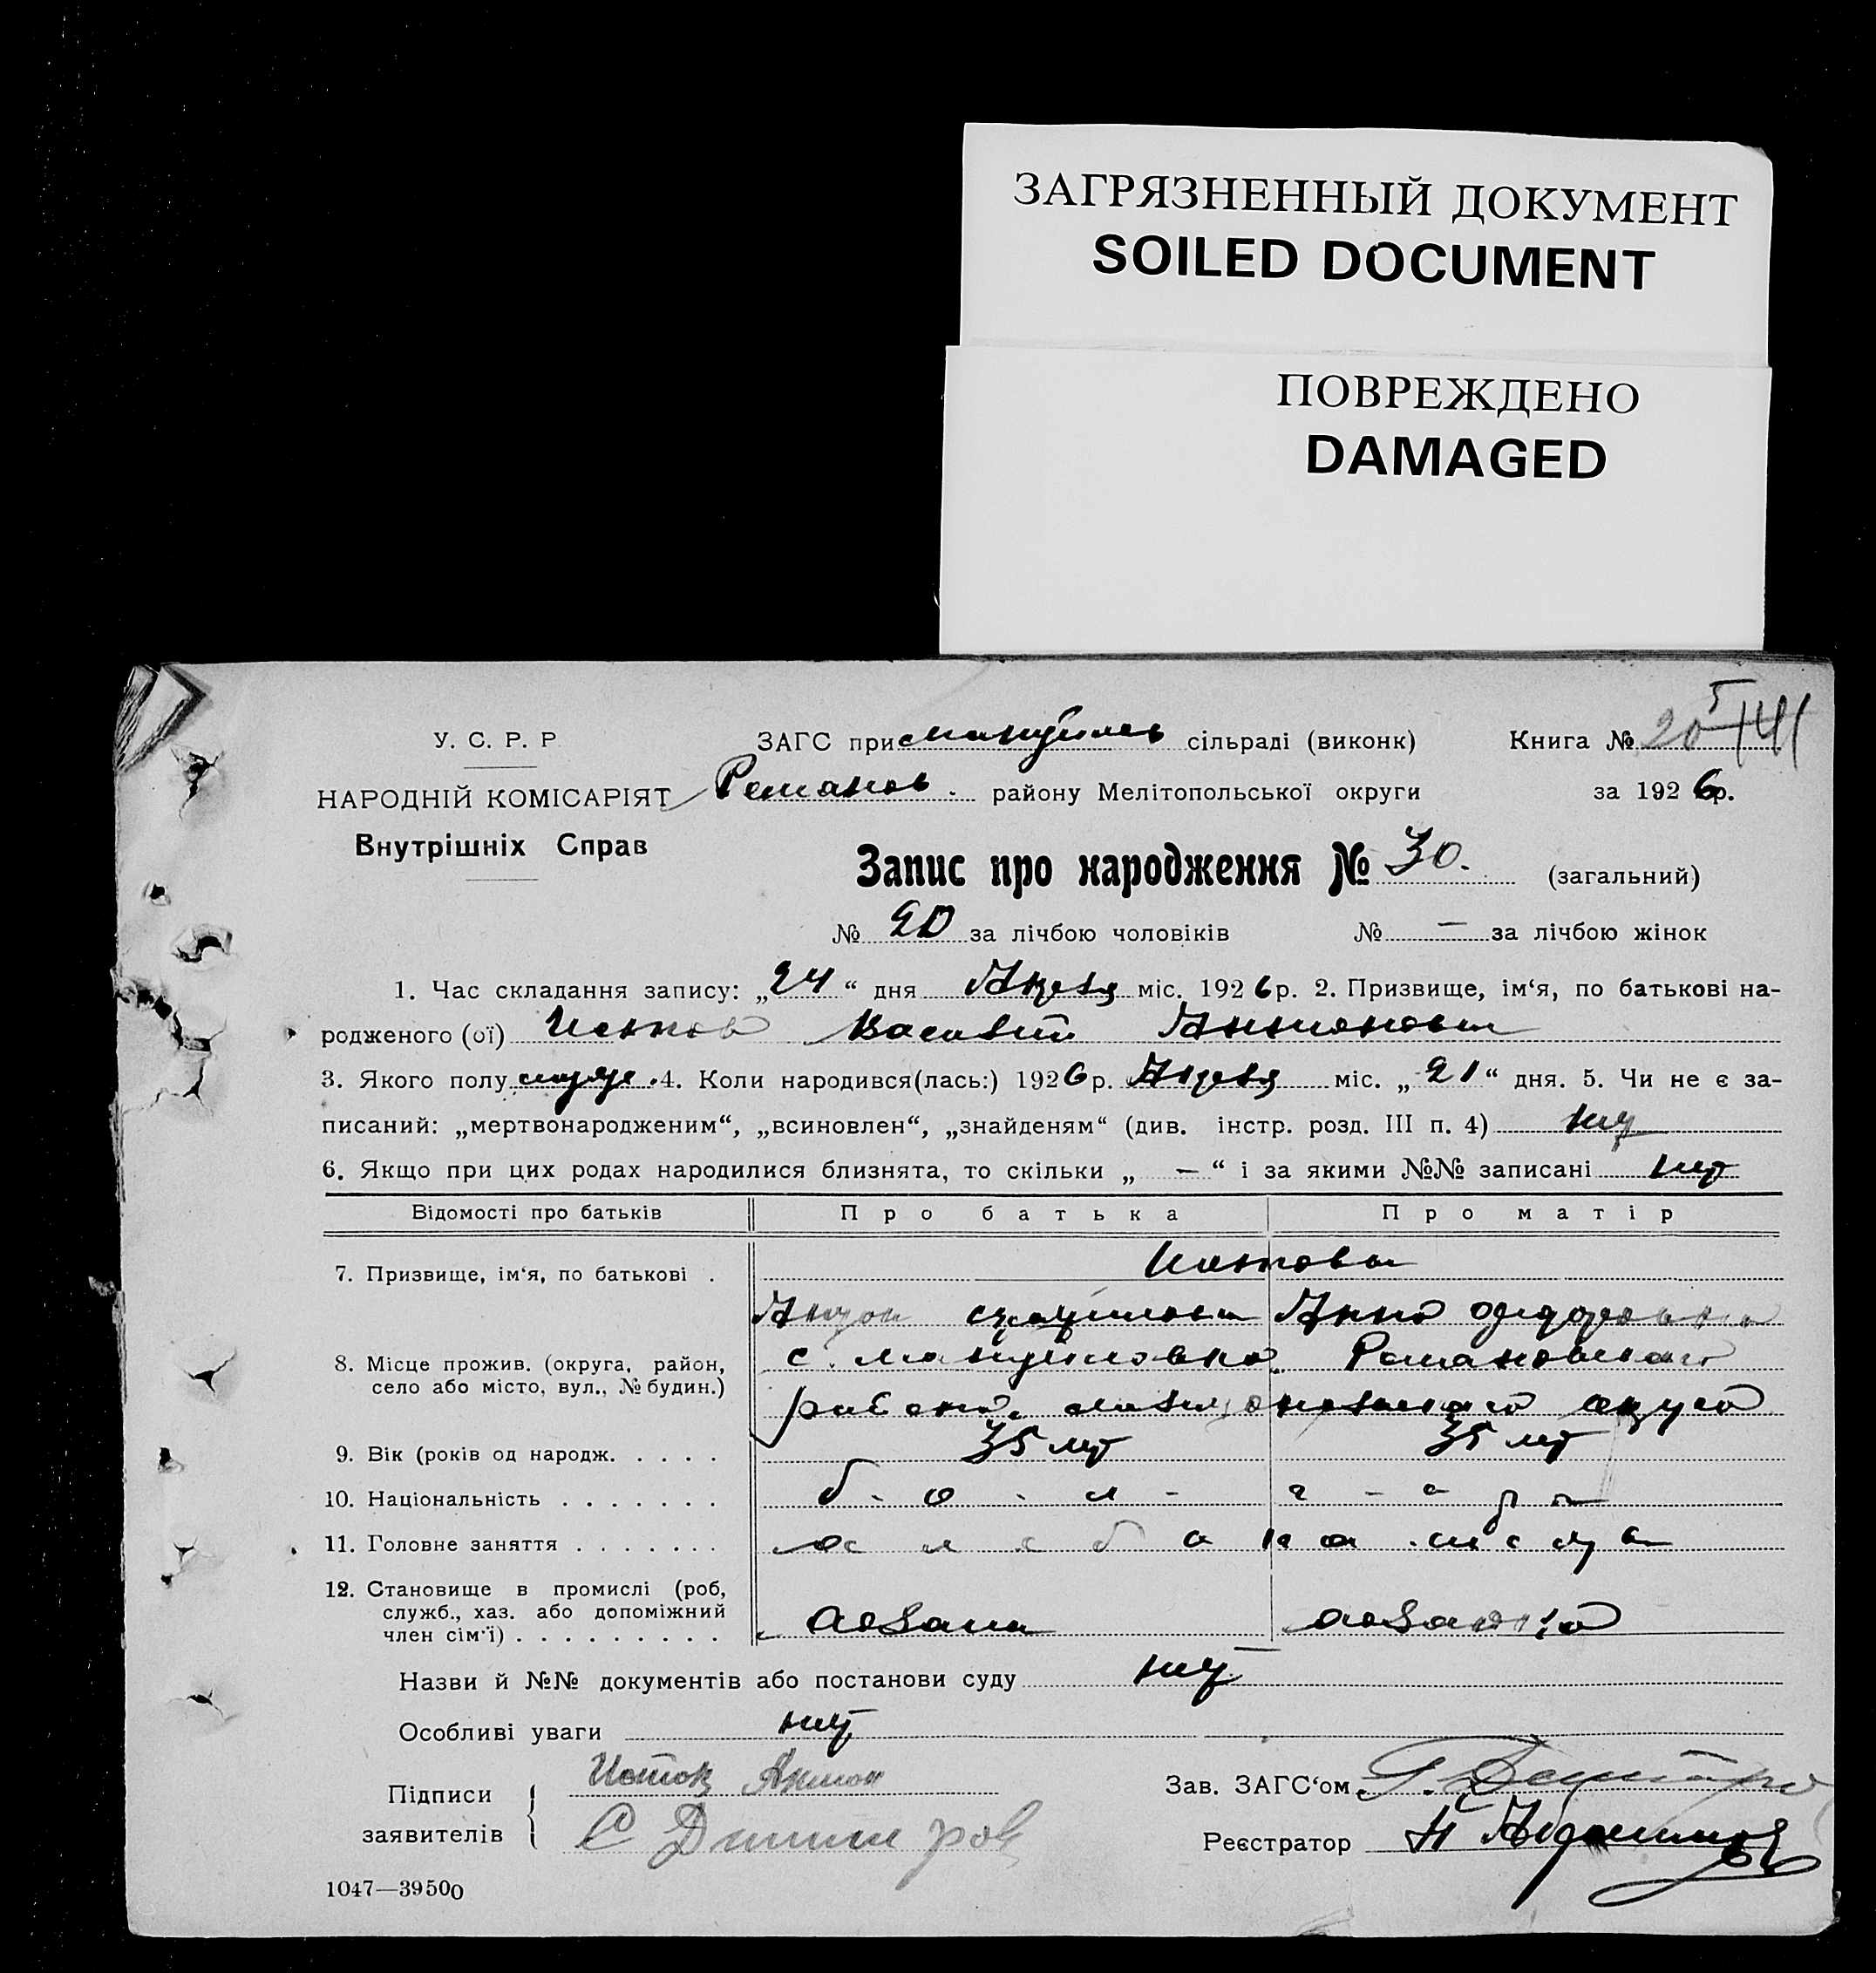 ЗАГРЯЗНЕННЫЙ ДОКУМЕНТ
SOILED DOCUMENT
ПОВРЕЖДЕНО
DAMAGED
У. С. Р. Р
ЗАГС при сільраді (виконк) Книга № 20
НАРОДНІЙ КОМІСАРІЯТ Романов. району Мелітопольської округи за 1926р.
Внутрішніх Справ
Запис про народження № 30. (загальний)
№ 20 за лічбою чоловіків № — за лічбою жінок
1. Час складання запису: „24“ дня Апреля міс. 1926р. 2. Призвище, ім‘я, по батькові на-
родженого (ої) Василий Антонович
3. Якого полу 4. Коли народився(лась:) 1926р. Апреля міс. „21“ дня. 5. Чи не є за-
писаний: „мертвонародженим“, „всиновлен“, „знайденям“ (див. інстр. розд. III п. 4) нет
6. Якщо при цих родах народилися близнята, то скільки „ — “ і за якими №№ записані нет
Відомості про батьків Про батька Про матір
7. Призвище, ім‘я, по батькові .
Антон Анна
8. Місце прожив. (округа, район, село або місто, вул., № будин.) с. Мануйловка Романовского
района, округа
9. Вік (років од народж. . . . . 35 лет 35 лет
10. Національність . . . . . . . болгары
11. Головне заняття . . . . . . .
12. Становище в промислі (роб, служб., хаз. або допоміжний член сім‘ї) . . . . . . . . . хозяин хозяйка
Назви й №№ документів або постанови суду нет
Особливі уваги нет
Підписи заявителів Антон
Зав. ЗАГС‘ом
С Димитров
Реєстратор
1047—39500